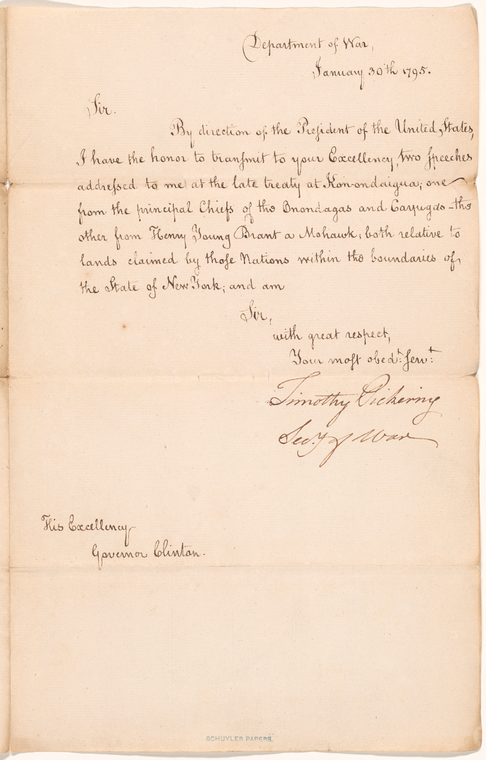 Department of War,
January 30th 1795.
Sir.
By direction of the President of the United States,
I have the honor to transmit to your Excellency two speeches
addressed to me at the late treaty at Kon-ondaigua; one
from the principal Chiefs of the Onondagas and Cayugas - the
other from Henry Young Brant a Mohawk; both relative to
lands claimed by those Nations within the boundaries of
the State of New York; and am
Sir,
with great respect,
Your most obedt. servt.
Timothy Pickering
Secy of War
His Excellency
Governor Clinton.
SCHUYLER PAPERS.